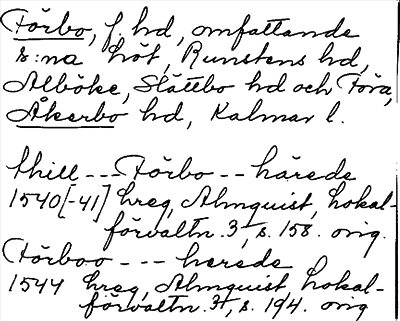 Förbo, f. hd, omfattande
s:na Löt, Runstens hd,
Alböke, Slättbo hd och Föra,
Åkerbo hd, Kalmar l.
thill --- Förbo -- härede
1540[-41] hreg, Almquist, Lokal-
förvaltn. 3, s. 158. orig.
Förboo --- herede
1544 hreg, Almquist, Lokal-
förvaltn. 3, s. 194. orig